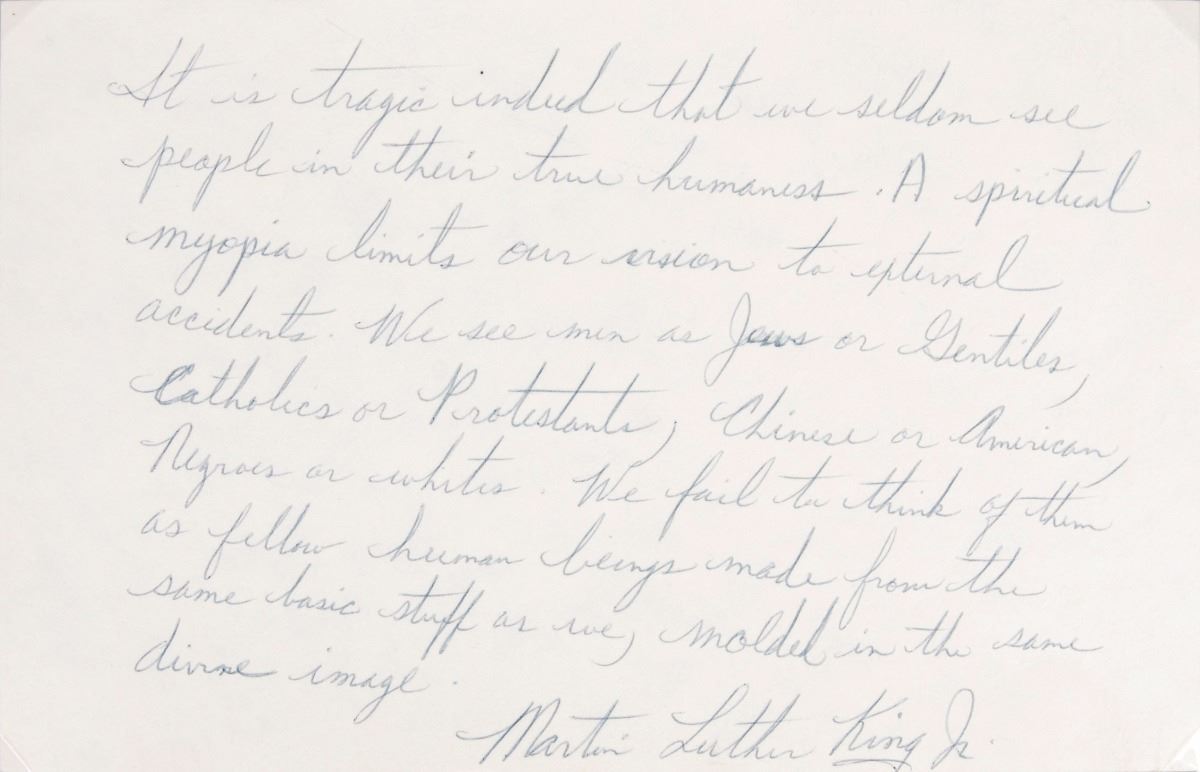 It is tragic indeed that we seldom see
people in their true humaness. A spiritual
myopia limits our vision to external
accidents. We see men as Jews or Gentiles,
Catholics or Protestants, Chinese or American,
Negroes or whites. We fail to think of them
as fellow human beings made from the
same basic stuff as we, molded in the same
divine image.
Martin Luther King Jr.